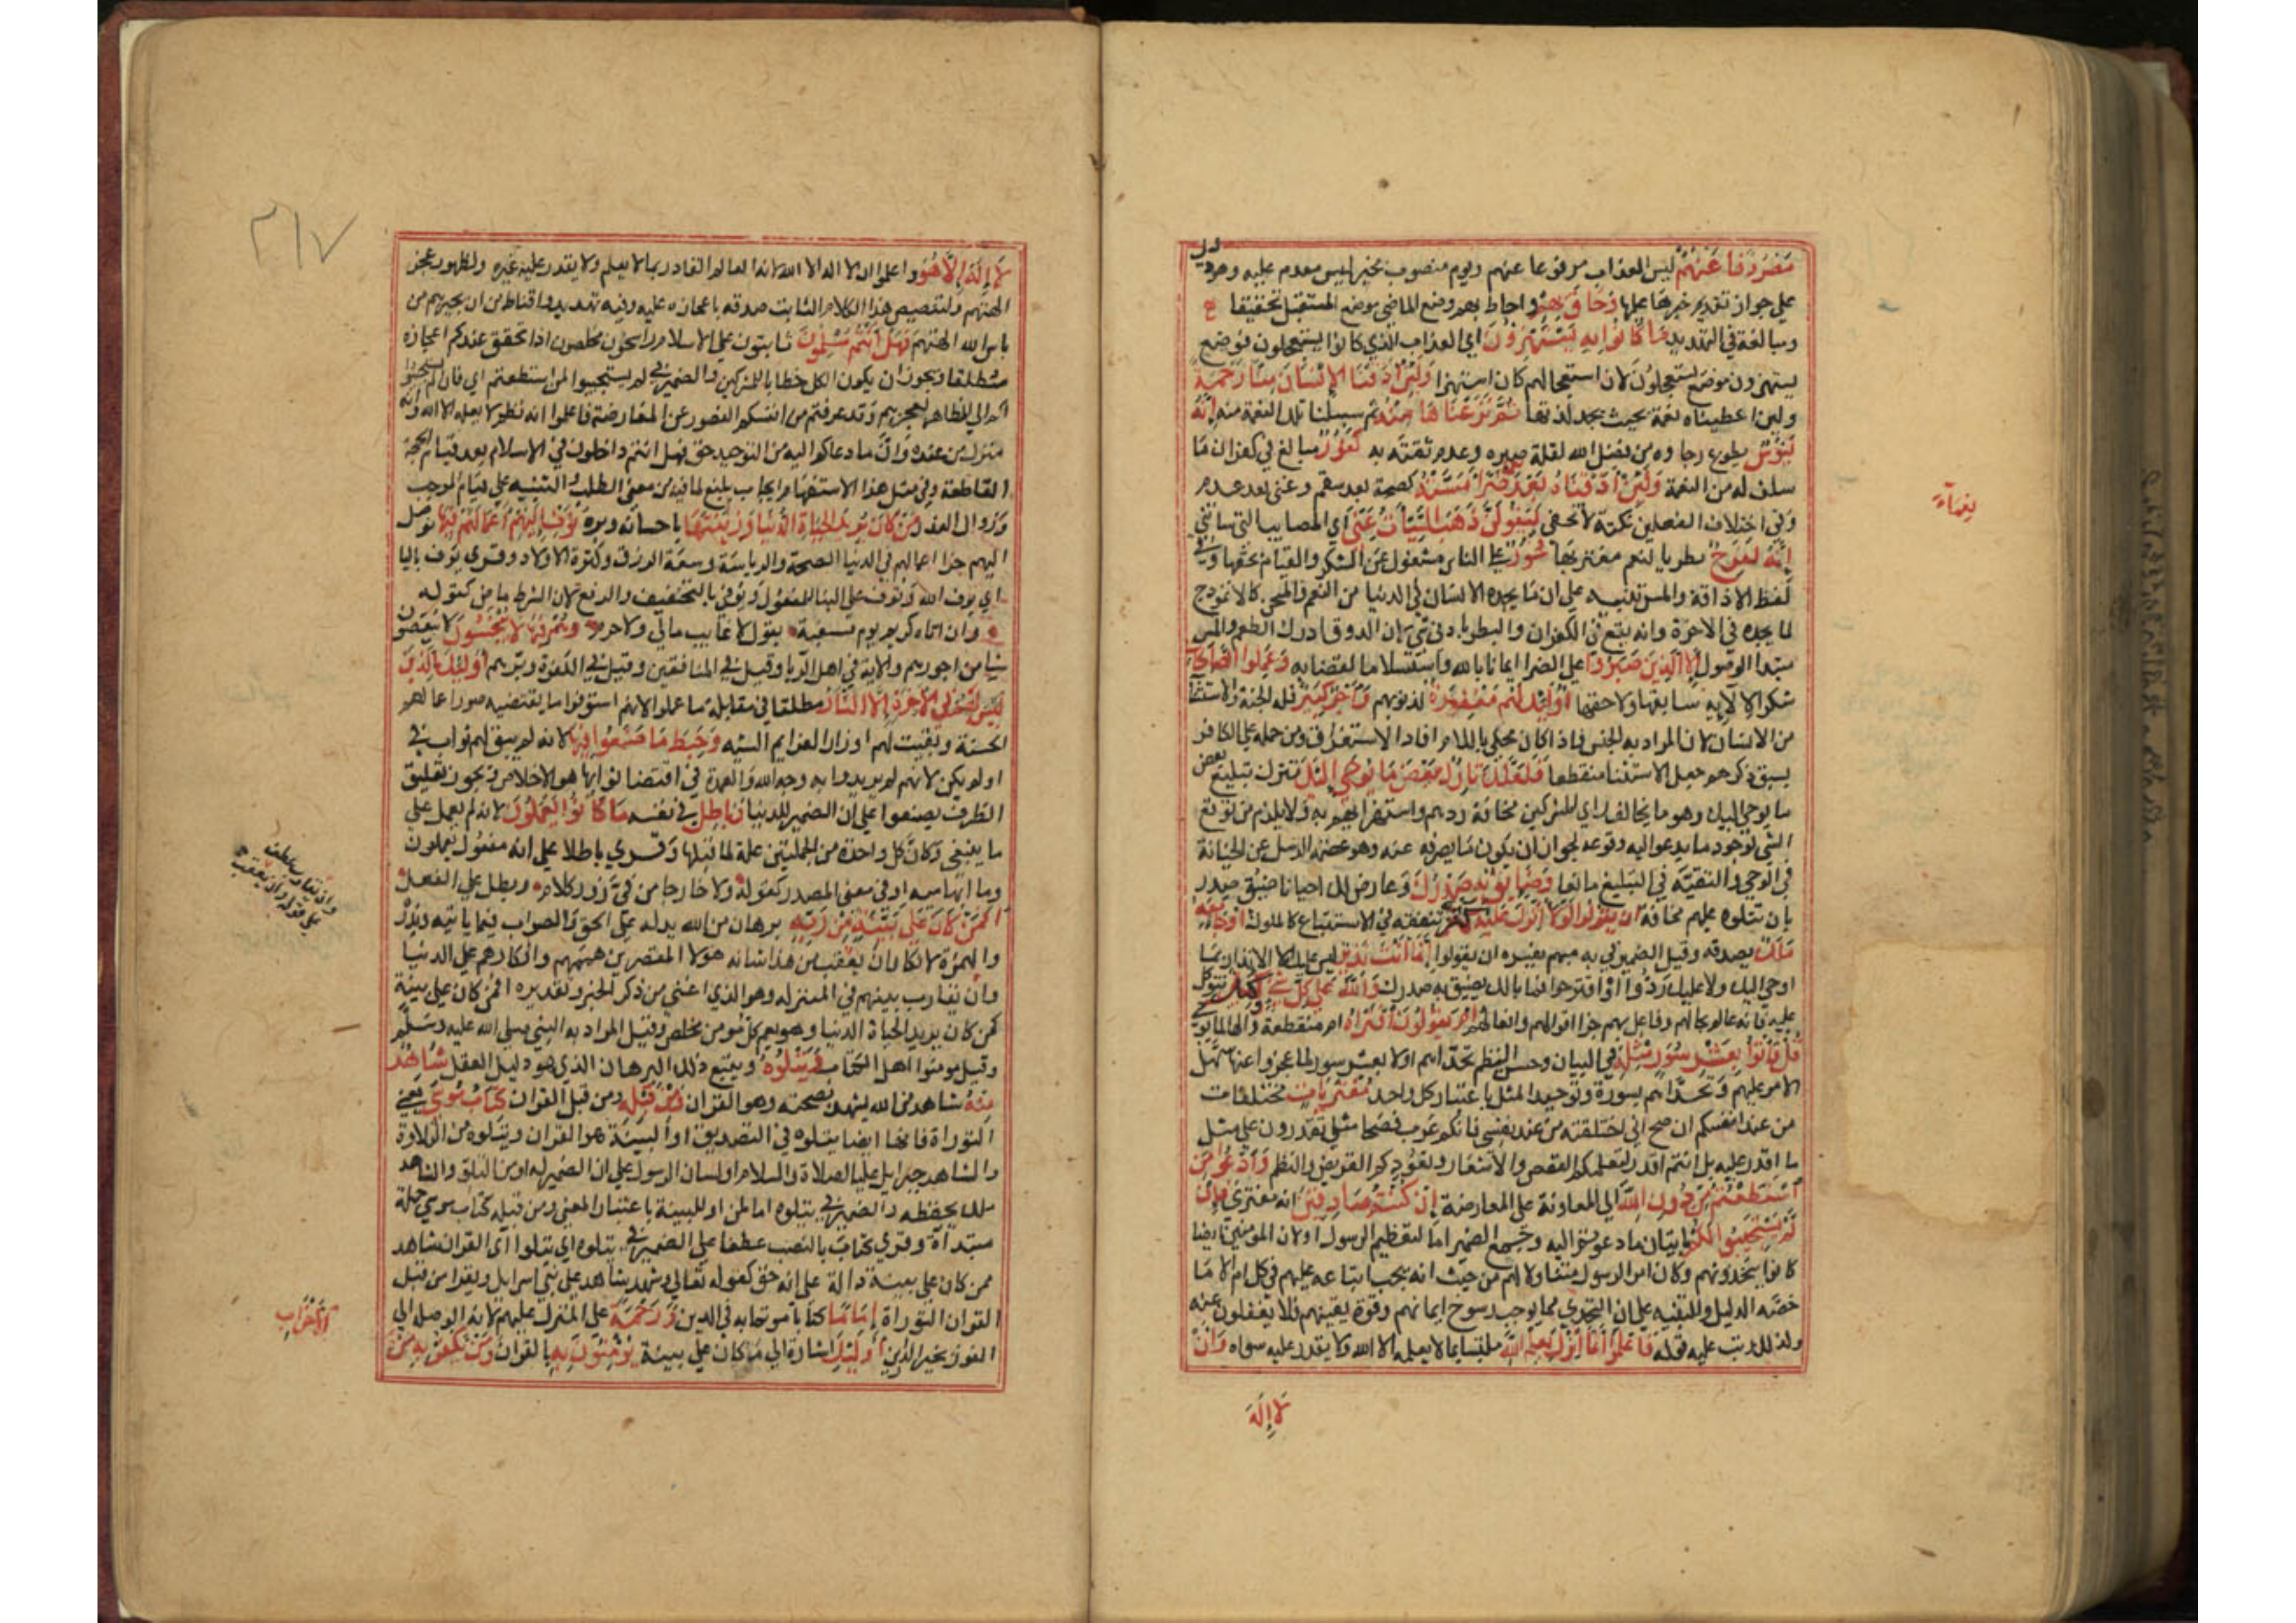 مَصْرُوفًا عَنْهُمْ ليس العذاب مرفوعا عنهم ويوم منصوب بخبر ليس مقدم عليه وهو دليل
على جواز تقديم خبرها عليها وَحَاقَ بِهِمْ واحاط بهم وضع الماضي موضع المستقبل تحقيقا
ومبالغة في التهديد مَا كَانُوا بِهِ يَسْتَهْزِؤُنَ اي العذاب الذي كانوا يستعجلون فوضع
يستهزون موضع يستعجلون لان استعجالهم كان استهزا وَلَئِنْ أَذَقْنَا الْإِنْسَانَ مِنَّا رَحْمَةً
ولين اعطيناه نعمة بحيث يجد لذتها ثُمَّ نَزَعْنَاهَا مِنْهُ ثم سلبنا تلك النعمة منه إِنَّهُ
لَيَؤُسٌ قطوع رجاوه من فضل الله لقلة صبره وعدم ثقته به كَفُورٌ مبالغ في كفران ما
سلف له من النعمة وَلَئِنْ أَذَقْنَاهُ بَعْدَ ضَرَّاءَ مَسَّتْهُ كصحة بعد سقم وغنى بعد عدم
وفي اختلاف الفعلين نكتة لا تخفى لَيَقُولَنَّ ذَهَبَ السَّيِّئَاتُ عَنِّي اي المصايب التي ساتني
إِنَّهُ لَفَرِحٌ بطر بالنعم مغتر بها فَخُورٌ على الناس مشغول عن الشكر والقيام بحقها وفي
لفظ الاذاقة والمس تنبيه على ان ما يجده الانسان في الدنيا من النعم والمحن كالانموذج
لما يجده في الاخرة وانه يقع في الكفران والبطر بادنى شي لان الذوق ادراك الطعم والمس
مبتدا الوصول إِلَّا الَّذِينَ صَبَرُوا على الضرا ايمانا بالله واستسلاما لقضايه وَعَمِلُوا الصَّالِحَاتِ
شكرا لالايه سابقها ولاحقها أُولَئِكَ لَهُمْ مَغْفِرَةٌ لذنوبهم وَأَجْرٌ كَبِيرٌ اقله الجنة والاستثنا
من الانسان لان المراد به الجنس فاذا كان محلى باللام افاد الاستغراق ومن حمله على الكافر
لسبق ذكرهم جعل الاستثنا منقطعا فَلَعَلَّكَ تَارِكٌ بَعْضَ مَا يُوحَى إِلَيْكَ تترك تبليغ بعض
ما يوحى اليك وهو ما يخالف راي المشركين مخافة ردهم واستهزايهم به ولا يلزم من توقع
الشي لوجود ما يدعو اليه وقوعه لجواز ان يكون ما يصرف عنه وهو عصمة الرسل عن الخيانة
في الوحي والتقية في التبليغ مانعا وَضَائِقٌ بِهِ صَدْرُكَ وعارض لك احيانا ضيق صدر
بان تتلوه عليهم مخافة أَنْ يَقُولُوا لَوْلَا أُنْزِلَ عَلَيْهِ كَنْزٌ ينفقه في الاستتباع كالملوك أَوْ جَاءَ مَعَهُ
مَلَكٌ يصدقه وقيل الضمير في به مبهم يفسره ان يقولوا إِنَّمَا أَنْتَ نَذِيرٌ ليس عليك الا الانذار بما
اوحي اليك ولا عليك ردوا او اقترحوا فما بالك يضيق به صدرك وَاللَّهُ عَلَى كُلِّ شَيْءٍ وَكِيلٌ فتوكل
عليه فانه عالم بحالهم وفاعل بهم جزا اقوالهم وافعالهم أَمْ يَقُولُونَ افْتَرَاهُ ام منقطعة والها لما يوحى
قُلْ فَأْتُوا بِعَشْرِ سُوَرٍ مِثْلِهِ في البيان وحسن النظم تحداهم اولا بعشر سور لما عجزوا عنها سهل
الامر عليهم وتحداهم بسورة وتوحيد المثل باعتبار كل واحد مُفْتَرَيَاتٍ مختلقات
من عند انفسكم ان صح اني اختلقته من عند نفسي فانكم عرب فصحا مثلي تقدرون على مثل
ما اقدر عليه بل انتم اقدر لتعلمكم القصص والاشعار وتعودكم القريض والنظم وَادْعُوا مَنِ
اسْتَطَعْتُمْ مِنْ دُونِ اللَّهِ الى المعاونة على المعارضة إِنْ كُنْتُمْ صَادِقِينَ انه مفترى فَإِنْ
لَمْ يَسْتَجِيبُوا لَكُمْ باتيان ما دعوتم اليه وجمع الضمير اما لتعظيم الرسول او لان المومنين ايضا
كانوا يتحدونهم وكان امر الرسول متناولا لهم من حيث انه يجب اتباعه عليهم في كل امر الا ما
خصه الدليل وللتنبيه على ان التحدي مما يوجب رسوخ ايمانهم وقوة يقينهم فلا يغفلون عنه
ولذلك رتب عليه قوله فَاعْلَمُوا أَنَّمَا أُنْزِلَ بِعِلْمِ اللَّهِ ملتبسا بما لا يعلمه الا الله ولا يقدر عليه سواه وَأَنْ
لَا إِلَهَ
نعماء
٣١٧
لَا إِلَهَ إِلَّا هُوَ واعلموا ان لا اله الا الله لانه العالم القادر بما لا يعلم ولا يقدر عليه غيره ولظهور عجز
الهتهم ولتنصيص هذا الكلام الثابت صدقه باعجازه عليه وفيه تهديد واقناط من ان يجيرهم من
باس الله الهتهم فَهَلْ أَنْتُمْ مُسْلِمُونَ ثابتون على الاسلام راسخون مخلصون اذا تحقق عندكم اعجازه
مطلقا ويجوز ان يكون الكل خطابا للمشركين والضمير في لم يستجيبوا لمن استطعتم اي فان لم يستجيبوا
لكم الى المظاهرة لعجزهم وقد عرفتم من انفسكم القصور عن المعارضة فاعلموا انه نظم لا يعلمه الا الله وانه
منزل من عنده وان ما دعاكم اليه من التوحيد حق فهل انتم داخلون في الاسلام بعد قيام الحجة
القاطعة وفي مثل هذا الاستفهام ايجاب بليغ لما فيه من معنى الطلب والتنبيه على قيام الموجب
وزوال العذر مَنْ كَانَ يُرِيدُ الْحَيَاةَ الدُّنْيَا وَزِينَتَهَا باحسانه وبره نُوَفِّ إِلَيْهِمْ أَعْمَالَهُمْ فِيهَا نوصل
اليهم جزا اعمالهم في الدنيا الصحة والرياسة وسعة الرزق وكثرة الاولاد وقري يوف باليا
اي يوف الله وتوف على البنا للمفعول ونوفي بالتخفيف والرفع لان الشرط ماض كقوله
وان اتاه كريم يوم مسغبة يقول لا غايب مالي ولا حرم وَهُمْ فِيهَا لَا يُبْخَسُونَ لا ينقصون
شيا من اجورهم والاية في اهل الريا وقيل في المنافقين وقيل في الكفرة وبرهم أُولَئِكَ الَّذِينَ
لَيْسَ لَهُمْ فِي الْآخِرَةِ إِلَّا النَّارُ مطلقا في مقابلة ما عملوا لانهم استوفوا ما يقتضيه صور اعمالهم
الحسنة وبقيت لهم اوزار العزايم السيه وَحَبِطَ مَا صَنَعُوا فِيهَا لانه لم يبق لهم ثواب في
او لم يكن لانهم لم يريدوا به وجه الله والعمدة في اقتضا ثوابها هو الاخلاص ويجوز تعليق
الظرف بصنعوا على ان الضمير للدنيا وَبَاطِلٌ في نفسه مَا كَانُوا يَعْمَلُونَ لانه لم يعمل على
ما ينبغي وكان كل واحدة من الجملتين علة لما قبلها وقري باطلا على انه مفعول يعملون
وما ابهاميه او في معنى المصدر كقوله ولا خارجا من في زور كلام وبطل على الفعل
أَفَمَنْ كَانَ عَلَى بَيِّنَةٍ مِنْ رَبِّهِ برهان من الله يدله على الحق والصواب فيما ياتيه ويذر
والهمزة لانكار ان يعقب من هذا شانه هولا المقصرين هممهم وافكارهم على الدنيا
وان يقارب بينهم في المنزله وهو الذي اغنى من ذكر الخبر وتقديره افمن كان على بينة
كمن كان يريد الحياة الدنيا وهو يعم كل مومن مخلص وقيل المراد به النبي صلى الله عليه وسلم
وقيل مومنوا اهل الكتاب وَيَتْلُوهُ ويتبع ذلك البرهان الذي هو دليل العقل شَاهِدٌ
مِنْهُ شاهد من الله يشهد بصحته وهو القران وَمِنْ قَبْلِهِ ومن قبل القران كِتَابُ مُوسَى يعني
التوراة فانها ايضا يتلوه في التصديق او البينة هو القران ويتلوه من التلاوة
والشاهد جبرايل عليه الصلاة والسلام او لسان الرسول على ان الضمير له او من التلو والشاهد
ملك يحفظه والضمير في يتلوه اما لمن او للبينة باعتبار المعنى ومن قبله كتاب موسى جملة
مبتداة وقري كتاب بالنصب عطفا على الضمير في يتلوه اي يتلوا اي القران شاهد
ممن كان على بينة دالة على انه حق كقوله تعالى وشهد شاهد على بني اسرايل ويقرا من قبل
القران التوراة إِمَامًا كتابا موتما به في الدين وَرَحْمَةً على المنزل عليهم لانه الوصله الى
الفوز بخير الدارين أُولَئِكَ اشارة الى من كان على بينة يُؤْمِنُونَ بِهِ بالقران وَمَنْ يَكْفُرْ بِهِ مِنَ
الْأَحْزَابِ